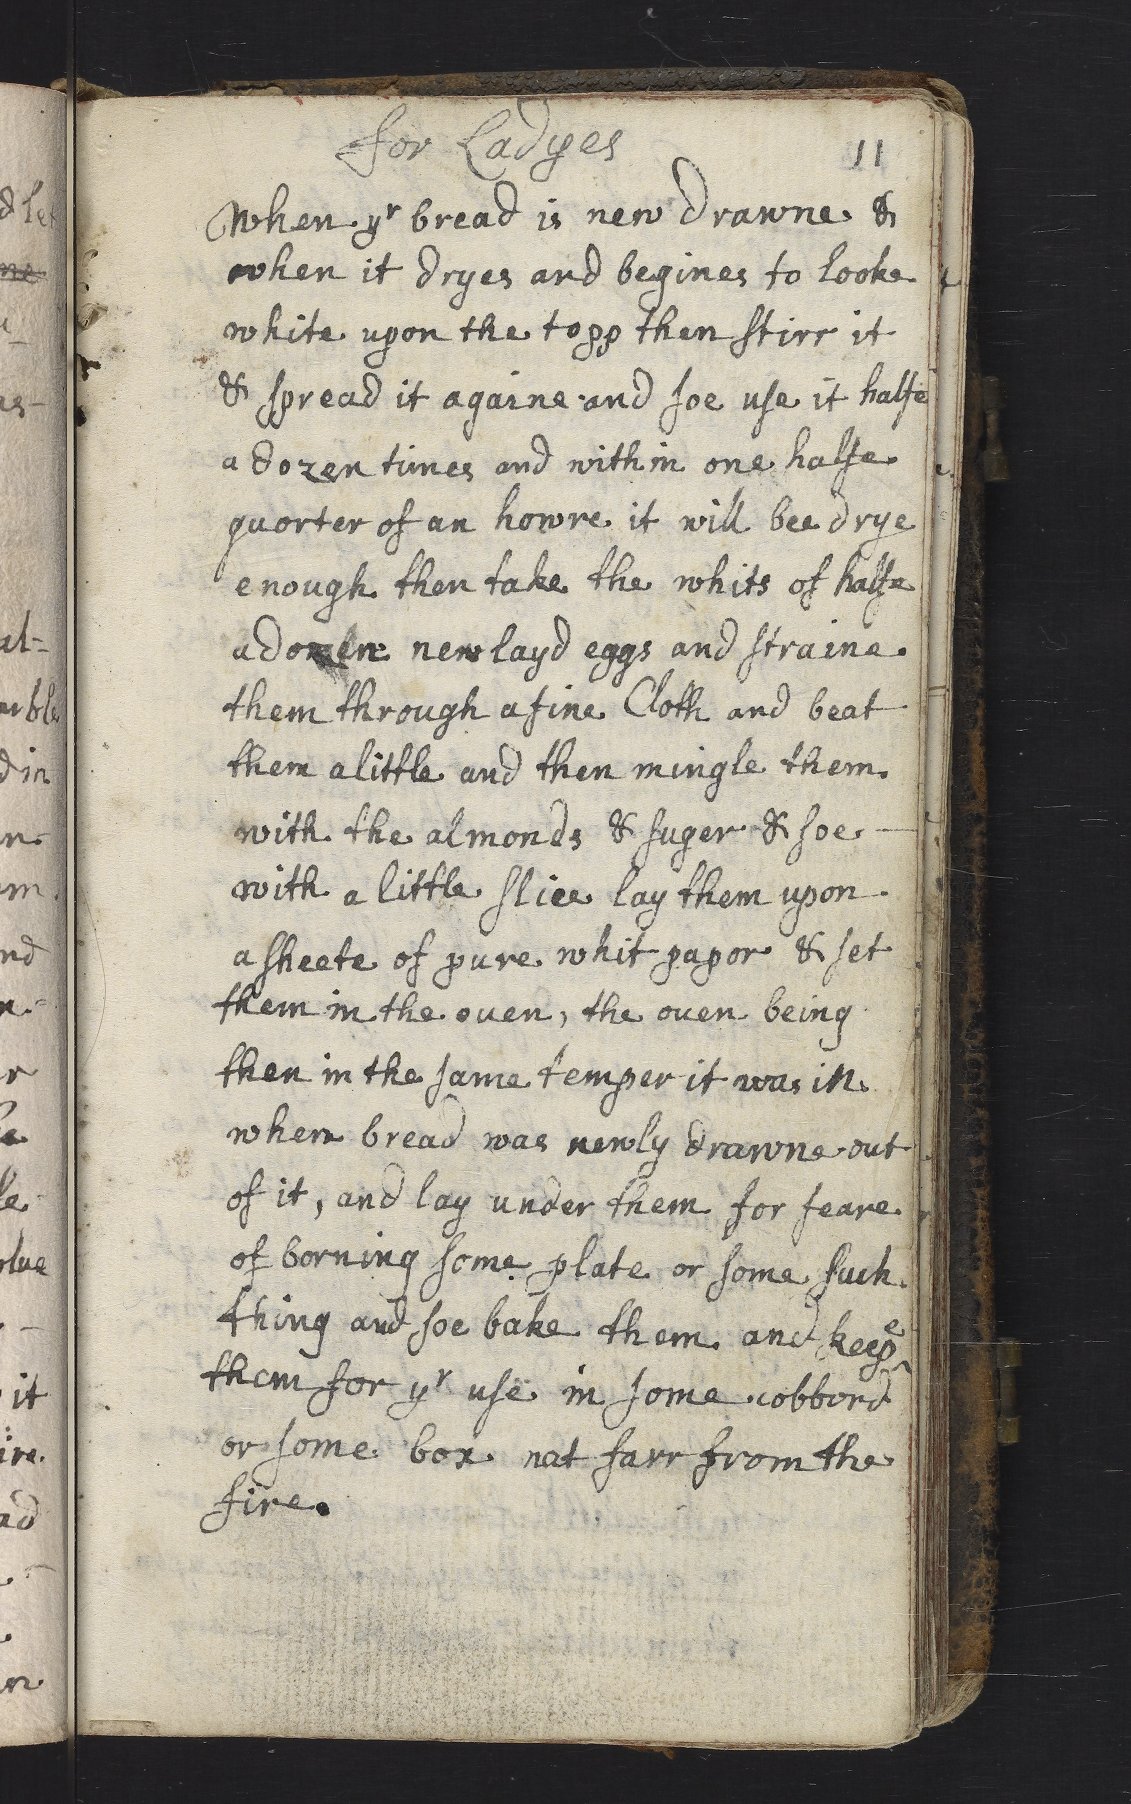 for Ladyes 11
When yr bread is new drawne &
when it dryes and begines to looke
white upon the topp then stirr it
& spread it againe and soe use it halfe
a dozen times and within one halfe
quorter of an howre it will bee drye
enough then take the whits of halfe
a dozen new layd eggs and straine
them through a fine Cloth and beat
them a little and then mingle them
with the almonds & suger & soe
with a little slice lay them upon
a sheete of pure whit papor & set
them in the ouen, the ouen being
then in the same temper it was in
when bread was newly drawne out
of it, and lay under them for feare
of borning some plate or some such
thing and soe bake them and keepe
them for yr use in some cobbord
or some box nat farr from the
fire.